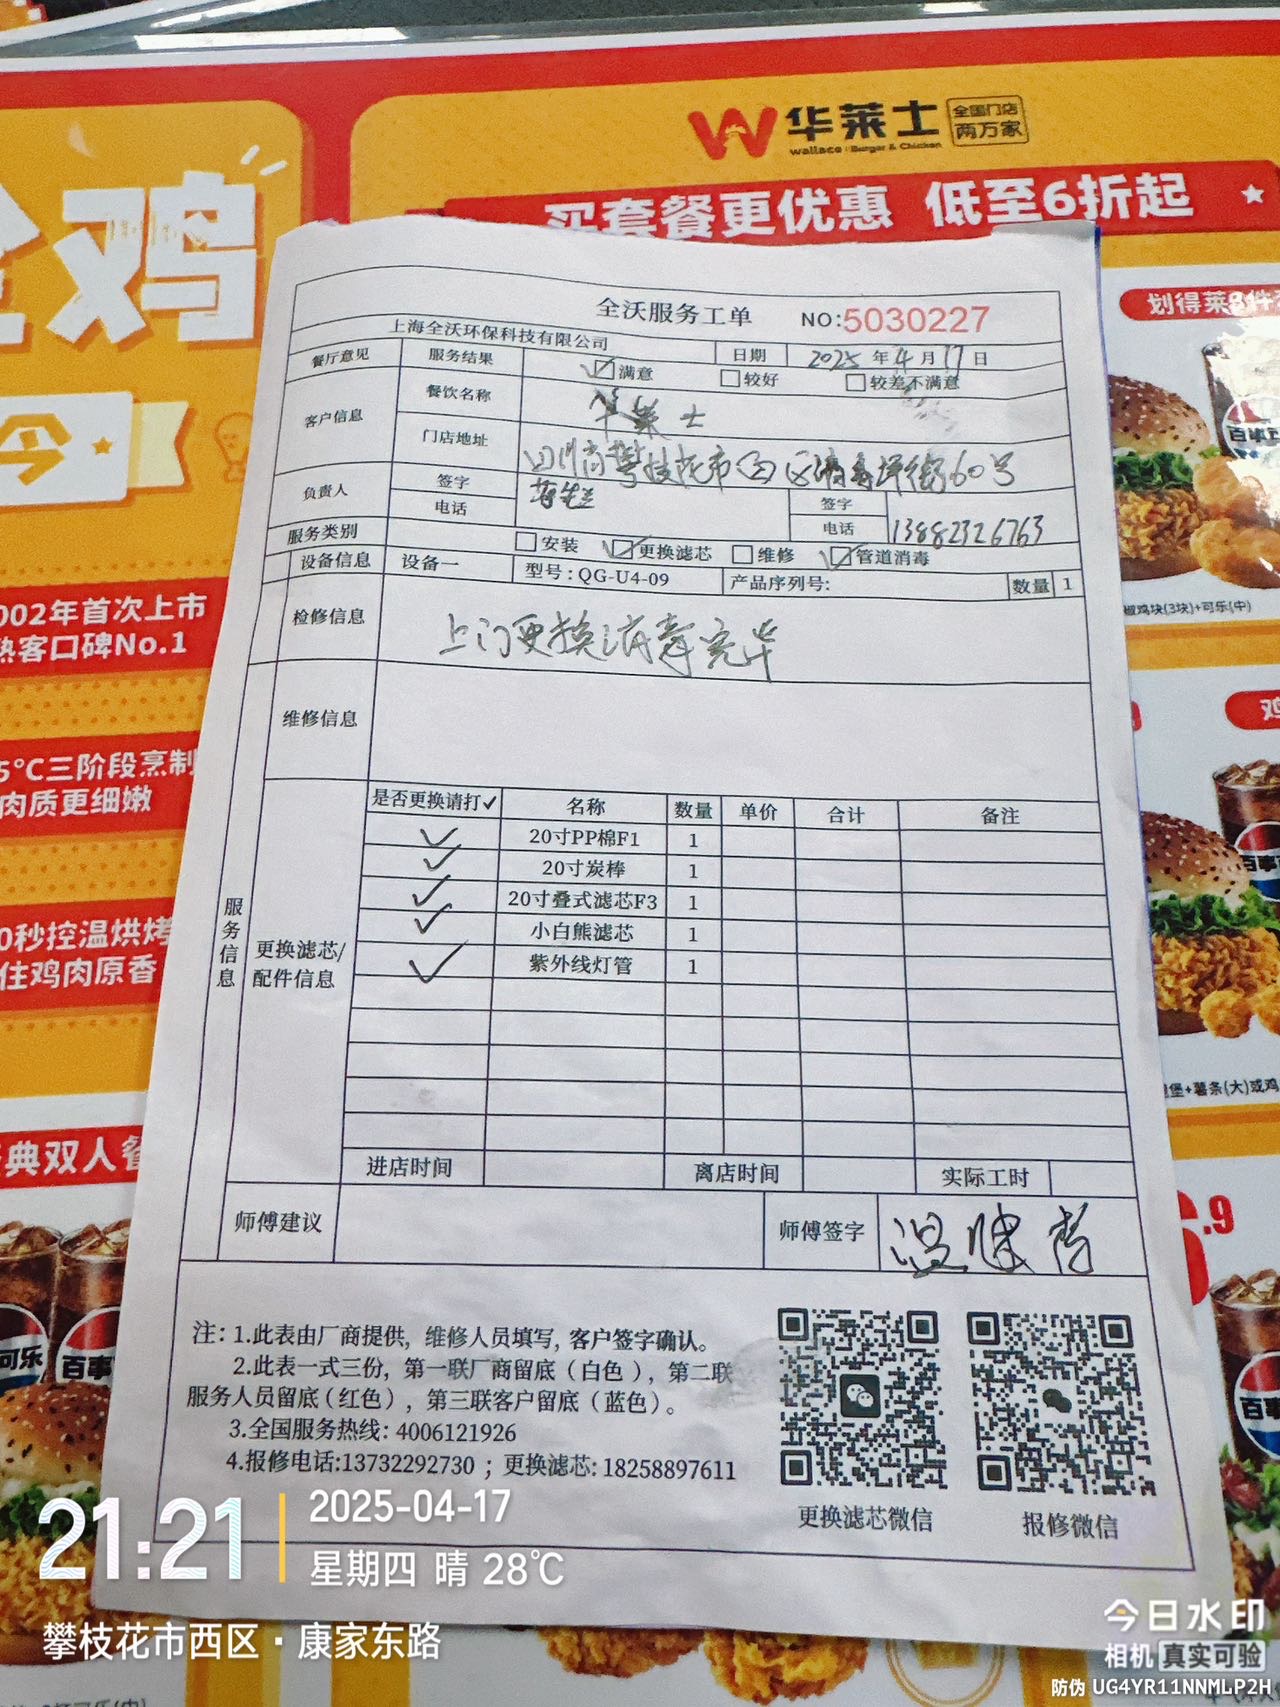 华莱士
全国门店
两万家
wallace Burger & Chicken
买套餐更优惠 低至6折起
全鸡
今
2002年首次上市
熟客口碑No.1
5°C三阶段烹制
肉质更细嫩
0秒控温烘烤
住鸡肉原香
典双人餐
全沃服务工单 NO:5030227
上海全沃环保科技有限公司 日期 2025年4月17日
餐厅意见 服务结果 满意 较好 较差不满意
客户信息 餐饮名称 华莱士
门店地址 四川省攀枝花市西区清香坪街60号
负责人 签字 签字
电话 电话 13882326763
服务类别 安装 更换滤芯 维修 管道消毒
设备信息 设备一 型号:QG-U4-09 产品序列号: 数量 1
检修信息 上门更换消毒完毕
维修信息
服务信息
更换滤芯/
配件信息
是否更换请打✓ 名称 数量 单价 合计 备注
✓ 20寸PP棉F1 1
✓ 20寸炭棒 1
✓ 20寸叠式滤芯F3 1
✓ 小白熊滤芯 1
✓ 紫外线灯管 1
进店时间 离店时间 实际工时
师傅建议 师傅签字
注:1.此表由厂商提供, 维修人员填写, 客户签字确认。
2.此表一式三份, 第一联厂商留底(白色), 第二联
服务人员留底(红色), 第三联客户留底(蓝色)。
3.全国服务热线: 4006121926
4.报修电话:13732292730 ; 更换滤芯: 18258897611
更换滤芯微信 报修微信
椒鸡块(3块)+可乐(中)
堡+薯条(大)或鸡
.9
百事可乐
21:21
2025-04-17
星期四 晴 28℃
攀枝花市西区·康家东路
今日水印
相机 真实可验
防伪 UG4YR11NNMLP2H